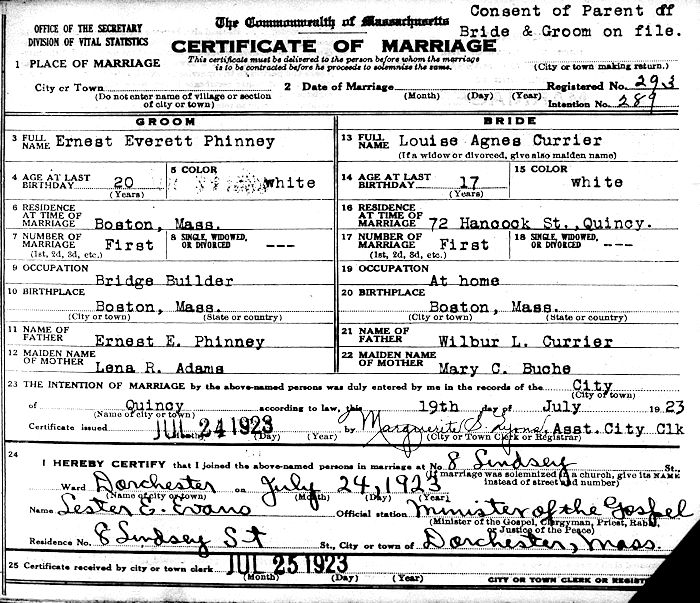 Consent of Parent of
OFFICE OF THE SECRETARY The Commonwealth of Massachusetts Bride & Groom on file.
DIVISION OF VITAL STATISTICS CERTIFICATE OF MARRIAGE
1 PLACE OF MARRIAGE This certificate must be delivered to the person before whom the marriage
is to be contracted before he proceeds to solemnize the same. (City or town making return.)
City or Town 2 Date of Marriage Registered No. 293
(Do not enter name of village or section (Month) (Day) (Year)
of city or town) Intention No. 289
GROOM BRIDE
3 FULL NAME Ernest Everett Phinney 13 FULL NAME Louise Agnes Currier
(If a widow or divorced, give also maiden name)
4 AGE AT LAST BIRTHDAY 20 (Years) 5 COLOR white 14 AGE AT LAST BIRTHDAY 17 (Years) 15 COLOR white
6 RESIDENCE AT TIME OF MARRIAGE Boston, Mass. 16 RESIDENCE AT TIME OF MARRIAGE 72 Hancock St., Quincy.
7 NUMBER OF MARRIAGE First (1st, 2d, 3d, etc.) 8 SINGLE, WIDOWED, OR DIVORCED --- 17 NUMBER OF MARRIAGE First (1st, 2d, 3d, etc.) 18 SINGLE, WIDOWED, OR DIVORCED ---
9 OCCUPATION Bridge Builder 19 OCCUPATION At home
10 BIRTHPLACE Boston, Mass. 20 BIRTHPLACE Boston, Mass.
(City or town) (State or country) (City or town) (State or country)
11 NAME OF FATHER Ernest E. Phinney 21 NAME OF FATHER Wilbur L. Currier
12 MAIDEN NAME OF MOTHER Lena R. Adams 22 MAIDEN NAME OF MOTHER Mary C. Buche
23 THE INTENTION OF MARRIAGE by the above-named persons was duly entered by me in the records of the City
(City or town)
of Quincy according to law, this 19th day of July 1923
(Name of city or town)
Certificate issued JUL 24 1923 by Marguerite S. Lyons, Asst. City Clk
(Month) (Day) (Year) (City or Town Clerk or Registrar)
24 I HEREBY CERTIFY that I joined the above-named persons in marriage at No. 8 Lindsey St.,
(If marriage was solemnized in a church, give its NAME
instead of street and number)
Ward Dorchester on July 24, 1923
(Name of city or town) (Month) (Day) (Year)
Name Lester E. Evans Official station Minister of the Gospel
(Minister of the Gospel, Clergyman, Priest, Rabbi,
or Justice of the Peace)
Residence No. 8 Lindsey St St., City or town of Dorchester, Mass.
25 Certificate received by city or town clerk JUL 25 1923
(Month) (Day) (Year) CITY OR TOWN CLERK OR REGIST